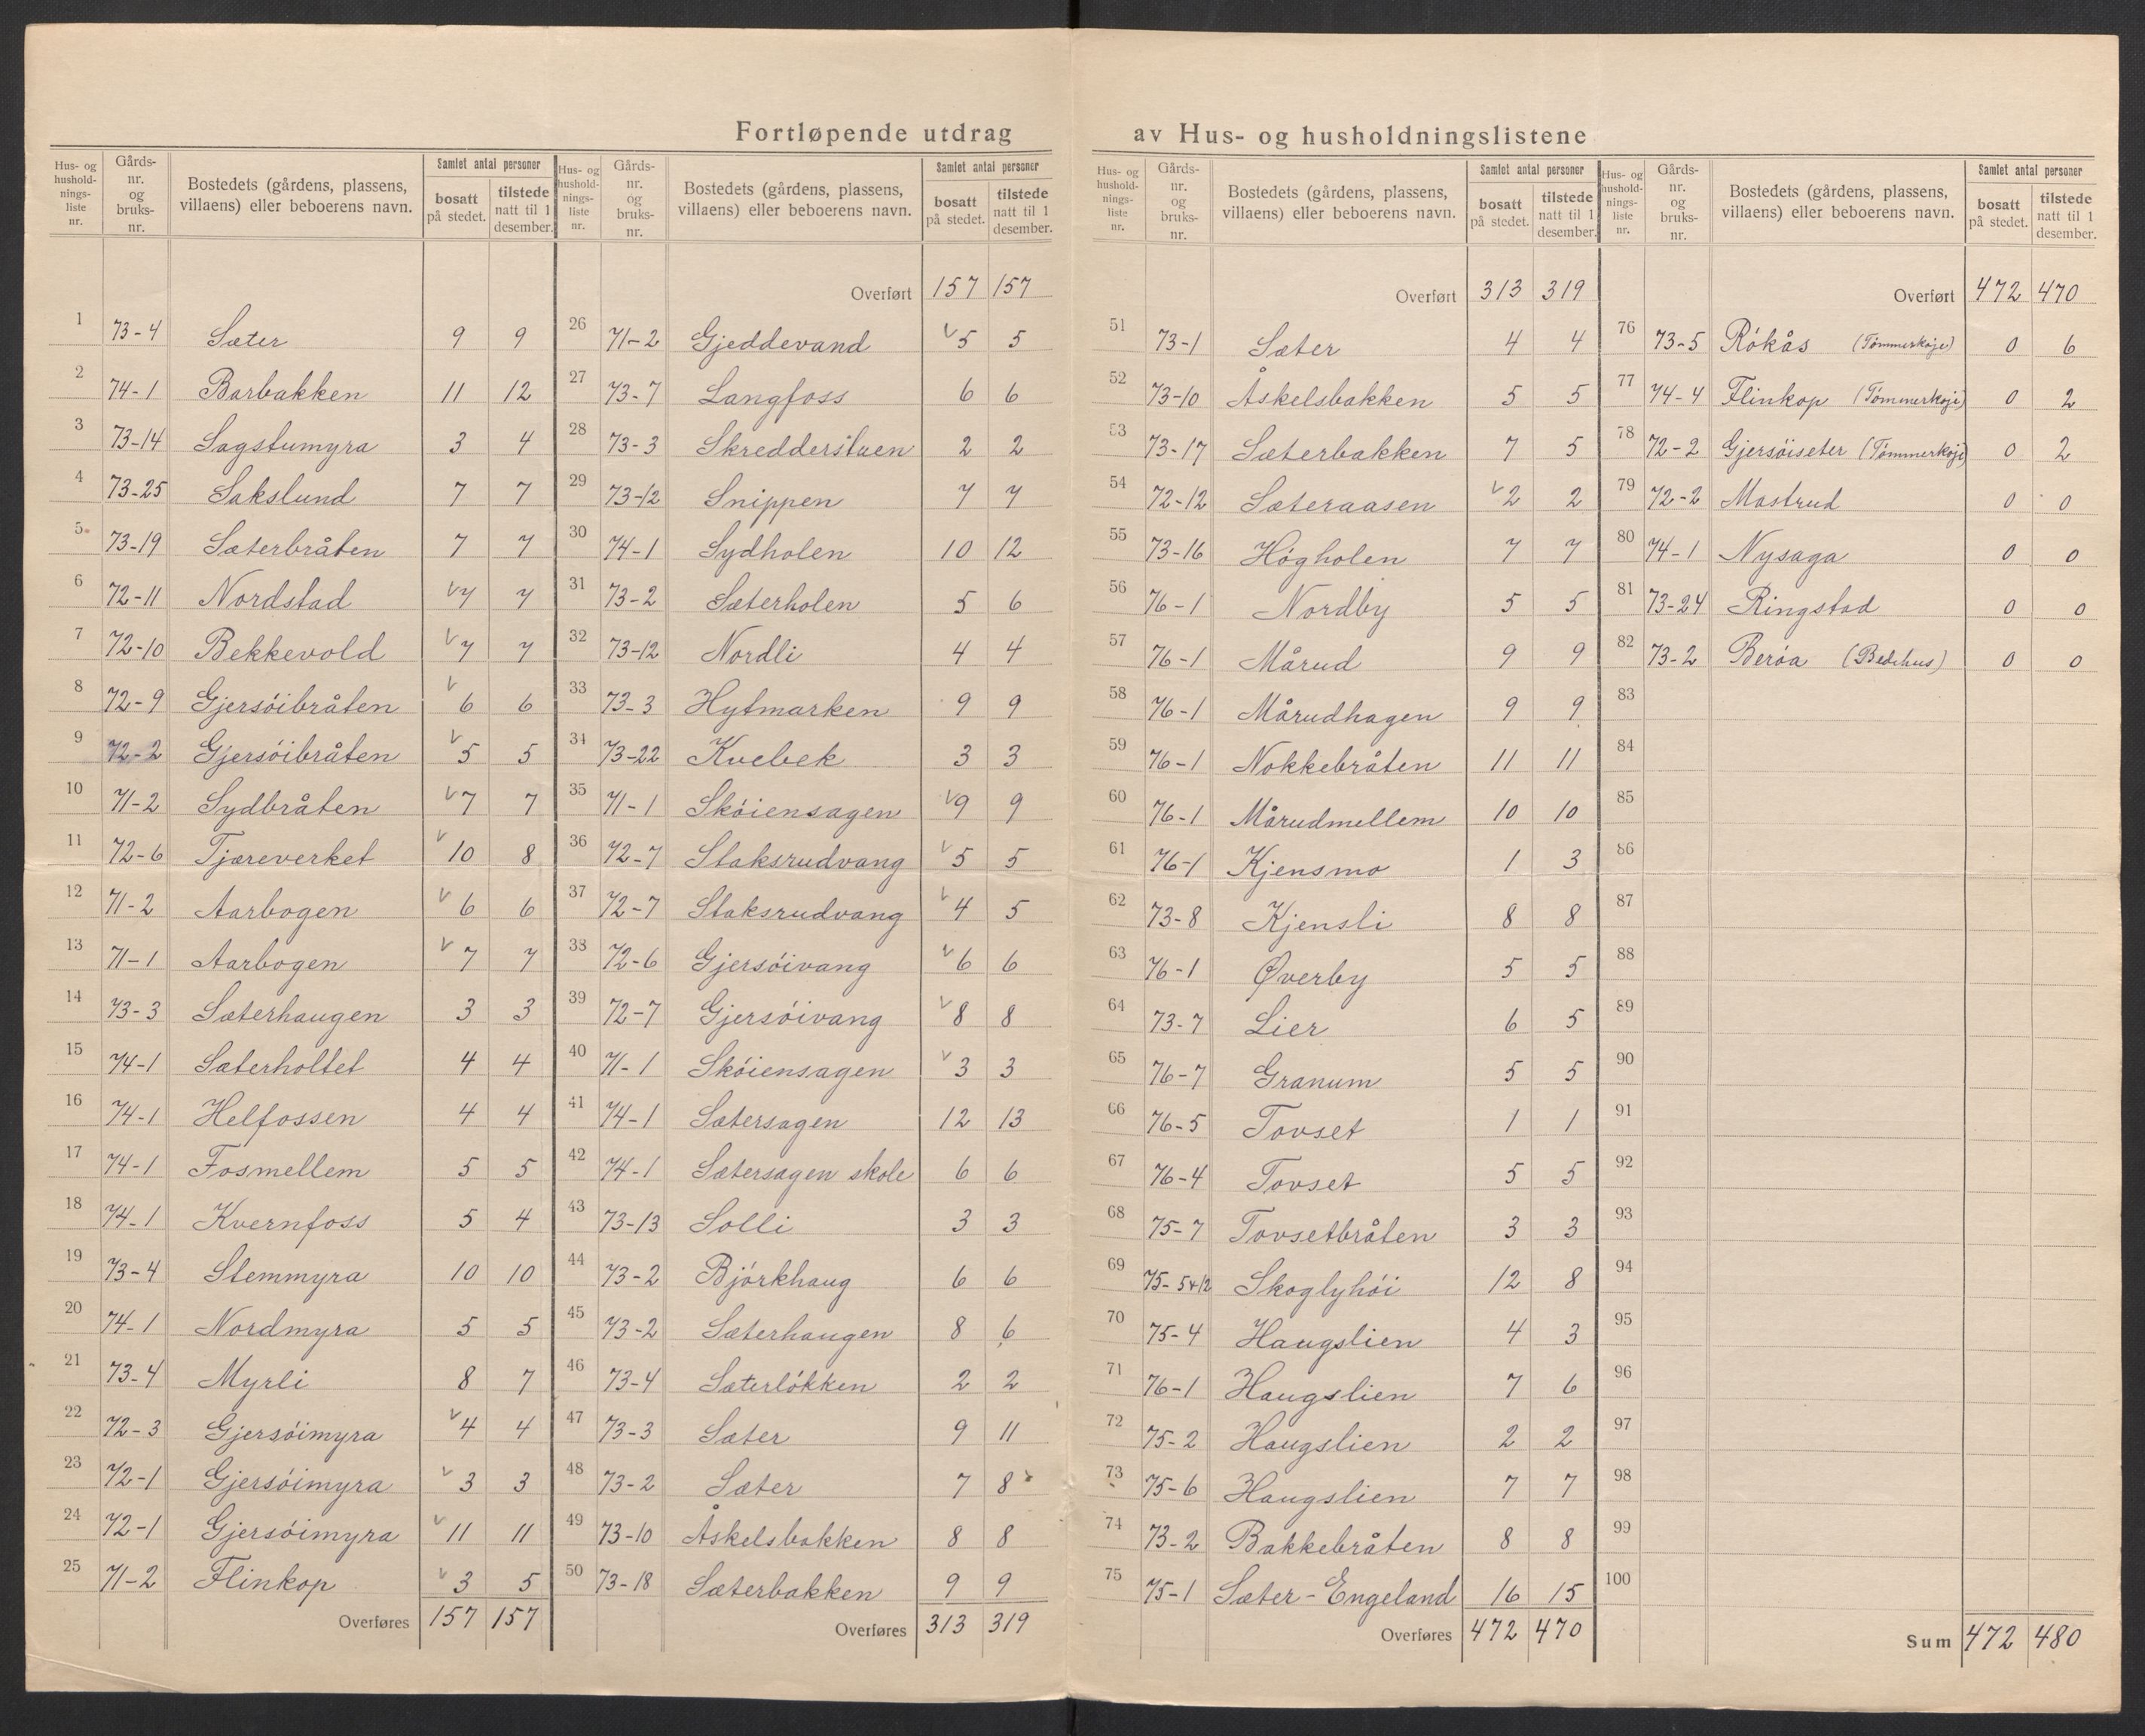 Fortløpende utdrag av Hus- og husholdningslistene
Hus- og husholdnings-liste nr. | Gårds-nr. og bruks-nr. | Bostedets (gårdens, plassens, villaens) eller beboerens navn. | Samlet antal personer bosatt på stedet. | tilstede natt til 1 desember.
1 73-4 Sæter 9 9
2 74-1 Barbakken 11 12
3 73-14 Sagstumyra 3 4
4 73-25 Sakslund 7 7
5 73-19 Sæterbråten 7 7
6 72-11 Nordstad 7 7
7 72-10 Bekkevold 7 7
8 72-9 Gjersöibråten 6 6
9 72-2 Gjersöibråten 5 5
10 71-2 Sydbråten 7 7
11 72-6 Tjæreverket 10 8
12 71-2 Aarbogen 6 6
13 71-1 Aarbogen 7 7
14 73-3 Sæterhaugen 3 3
15 74-1 Sæterholtet 4 4
16 74-1 Helfossen 4 4
17 74-1 Fosmellem 5 5
18 74-1 Kvernfoss 5 4
19 73-4 Stemmyra 10 10
20 74-1 Nordmyra 5 5
21 73-4 Myrli 8 7
22 72-3 Gjersöimyra 4 4
23 72-1 Gjersöimyra 3 3
24 72-1 Gjersöimyra 11 11
25 71-2 Flinkop 3 5
Overføres 157 157
Hus- og husholdnings-liste nr. | Gårds-nr. og bruks-nr. | Bostedets (gårdens, plassens, villaens) eller beboerens navn. | Samlet antal personer bosatt på stedet. | tilstede natt til 1 desember.
Overført 157 157
26 71-2 Gjeddevand 5 5
27 73-7 Langfoss 6 6
28 73-3 Skredderstuen 2 2
29 73-12 Snippen 7 7
30 74-1 Sydholen 10 12
31 73-2 Sæterholen 5 6
32 73-12 Nordli 4 4
33 73-3 Hytmarken 9 9
34 73-22 Kvebek 3 3
35 71-1 Sköiensagen 9 9
36 72-7 Staksrudvang 5 5
37 72-7 Staksrudvang 4 5
38 72-6 Gjersöivang 6 6
39 72-7 Gjersöivang 8 8
40 71-1 Sköiensagen 3 3
41 74-1 Sætersagen 12 13
42 74-1 Sætersagen skole 6 6
43 73-13 Solli 3 3
44 73-2 Björkhaug 6 6
45 73-2 Sæterhaugen 8 6
46 73-4 Sæterlökken 2 2
47 73-3 Sæter 9 11
48 73-2 Sæter 7 8
49 73-10 Åskelsbakken 8 8
50 73-18 Sæterbakken 9 9
Overføres 313 319
Hus- og husholdnings-liste nr. | Gårds-nr. og bruks-nr. | Bostedets (gårdens, plassens, villaens) eller beboerens navn. | Samlet antal personer bosatt på stedet. | tilstede natt til 1 desember.
Overført 313 319
51 73-1 Sæter 4 4
52 73-10 Åskelsbakken 5 5
53 73-17 Sæterbakken 7 5
54 72-12 Sæteraasen 2 2
55 73-16 Högholen 7 7
56 76-1 Nordby 5 5
57 76-1 Mårud 9 9
58 76-1 Mårudhagen 9 9
59 76-1 Nokkebråten 11 11
60 76-1 Mårudmellem 10 10
61 76-1 Kjensmo 1 3
62 73-8 Kjensli 8 8
63 76-1 Øverby 5 5
64 73-7 Lier 6 5
65 76-7 Granum 5 5
66 76-5 Tovset 1 1
67 76-4 Tovset 5 5
68 75-7 Tovsetbråten 3 3
69 75-5+12 Skoglyhöi 12 8
70 75-4 Haugslien 4 3
71 76-1 Haugslien 7 6
72 75-2 Haugslien 2 2
73 75-6 Haugslien 7 7
74 73-2 Bakkebråten 8 8
75 75-1 Sæter-Engeland 16 15
Overføres 472 470
Hus- og husholdnings-liste nr. | Gårds-nr. og bruks-nr. | Bostedets (gårdens, plassens, villaens) eller beboerens navn. | Samlet antal personer bosatt på stedet. | tilstede natt til 1 desember.
Overført 472 470
76 73-5 Rökås (Tömmerkoje) 0 6
77 74-4 Flinkop (Tömmerkoje) 0 2
78 72-2 Gjersöiseter (Tömmerkoje) 0 2
79 72-2 Mastrud 0 0
80 74-1 Nysaga 0 0
81 73-24 Ringstad 0 0
82 73-2 Beröa (Bedehus) 0 0
83
84
85
86
87
88
89
90
91
92
93
94
95
96
97
98
99
100
Sum 472 480